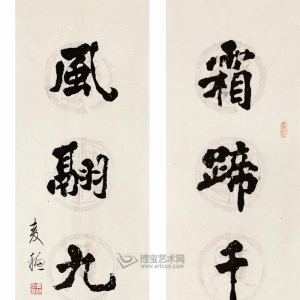 霜蹄千
風翮九
博宝艺术网
www.artxun.com